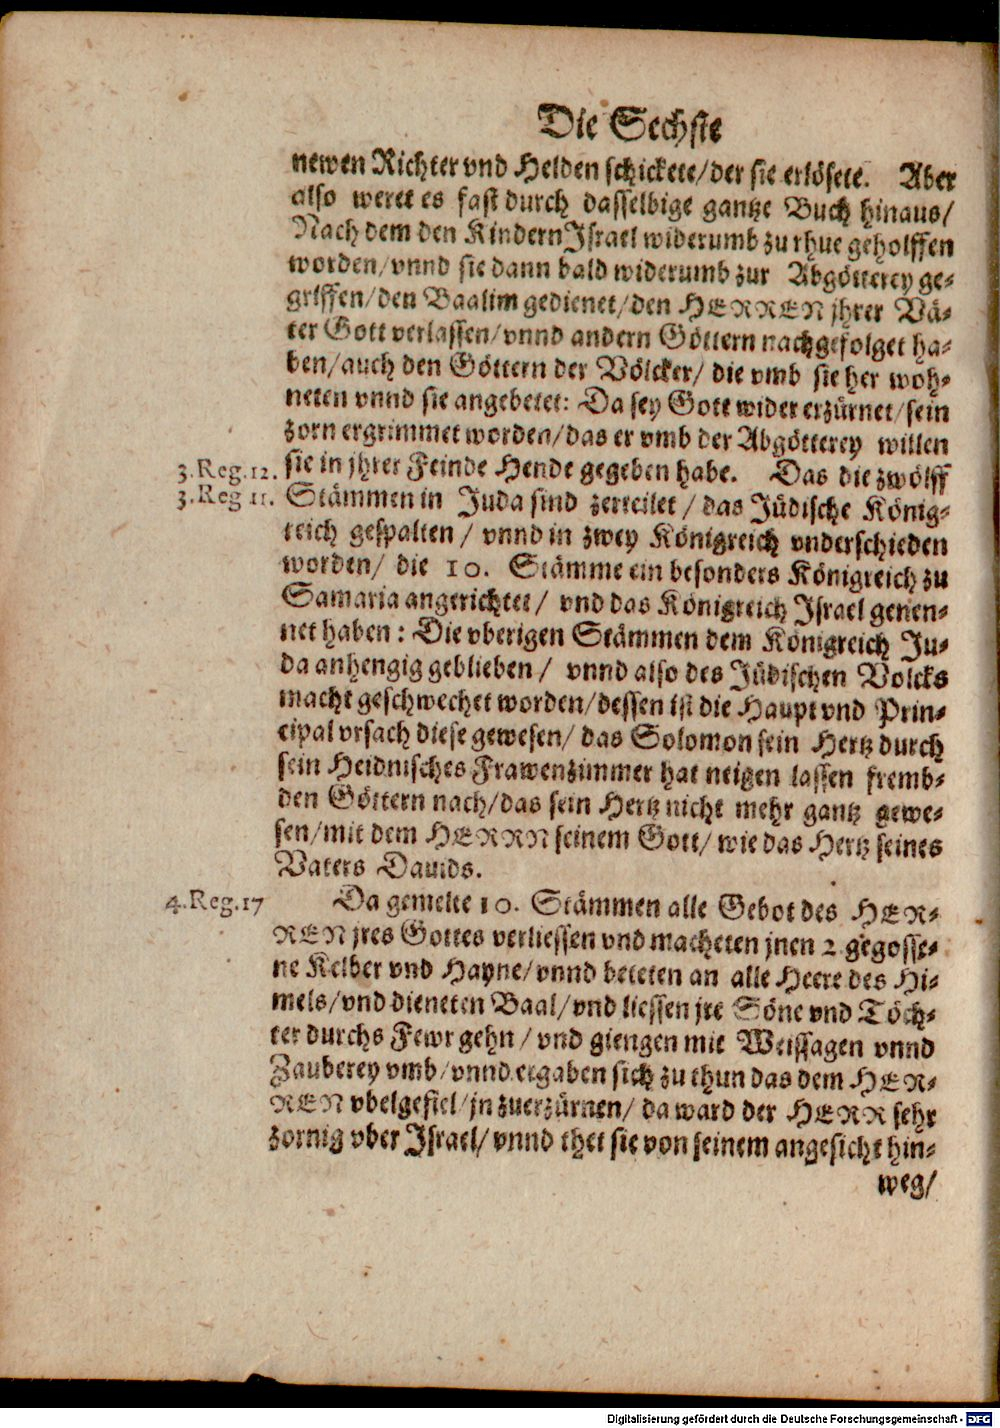 Die Sechste
newen Richter vnd Helden schickete/der sie erlösete. Aber
also weret es fast durch dasselbige gantze Buch hinaus/
Nach dem den Kindern Israel widerumb zu rhue geholffen
worden/vnnd sie dann bald widerumb zur Abgötterey ge-
griffen/den Baalim gedienet/den HERREN jhrer Vä-
ter Gott verlassen/vnnd andern Göttern nachgefolget ha-
ben/auch den Göttern der Völcker/ die vmb sie her woh-
neten vnnd sie angebetet: Da sey Gott wider erzürnet/sein
zorn ergrimmet worden/das er vmb der Abgötterey willen
3.Reg.12. sie in jhrer Feinde Hende gegeben habe. Das die zwölff
3.Reg 11. Stämmen in Juda sind zerteilet / das Jüdische König-
reich gespalten / vnnd in zwey Königreich vnderschieden
worden/ die 10. Stämme ein besonders Königreich zu
Samaria angerichtet/ vnd das Königreich Israel genen-
net haben : Die vberigen Stämmen dem Königreich Ju-
da anhengig geblieben / vnnd also des Jüdischen Volcks
macht geschwechet worden/dessen ist die Haupt vnd Prin-
cipal vrsach diese gewesen/ das Solomon sein Hertz durch
sein Heidnisches Frawenzimmer hat neigen lassen fremb-
den Göttern nach/das sein Hertz nicht mehr gantz gewe-
sen/mit dem HERRN seinem Gott/ wie das Hertz seines
Vaters Dauids.
4.Reg.17 Da gemelte 10. Stämmen alle Gebot des HER-
REN jres Gottes verliessen vnd macheten jnen 2 gegosse-
ne Kelber vnd Hayne/vnnd beteten an alle Heere des Hi-
mels/vnd dieneten Baal/vnd liessen jre Söne vnd Töch-
ter durchs Fewr gehn / vnd giengen mit Weissagen vnnd
Zauberey vmb/vnnd ergaben sich zu thun das dem HER-
REN vbelgefiel/jn zuerzürnen/ da ward der HERR sehr
zornig vber Israel/ vnnd thet sie von seinem angesicht hin-
weg/
Digitalisierung gefördert durch die Deutsche Forschungsgemeinschaft - DFG